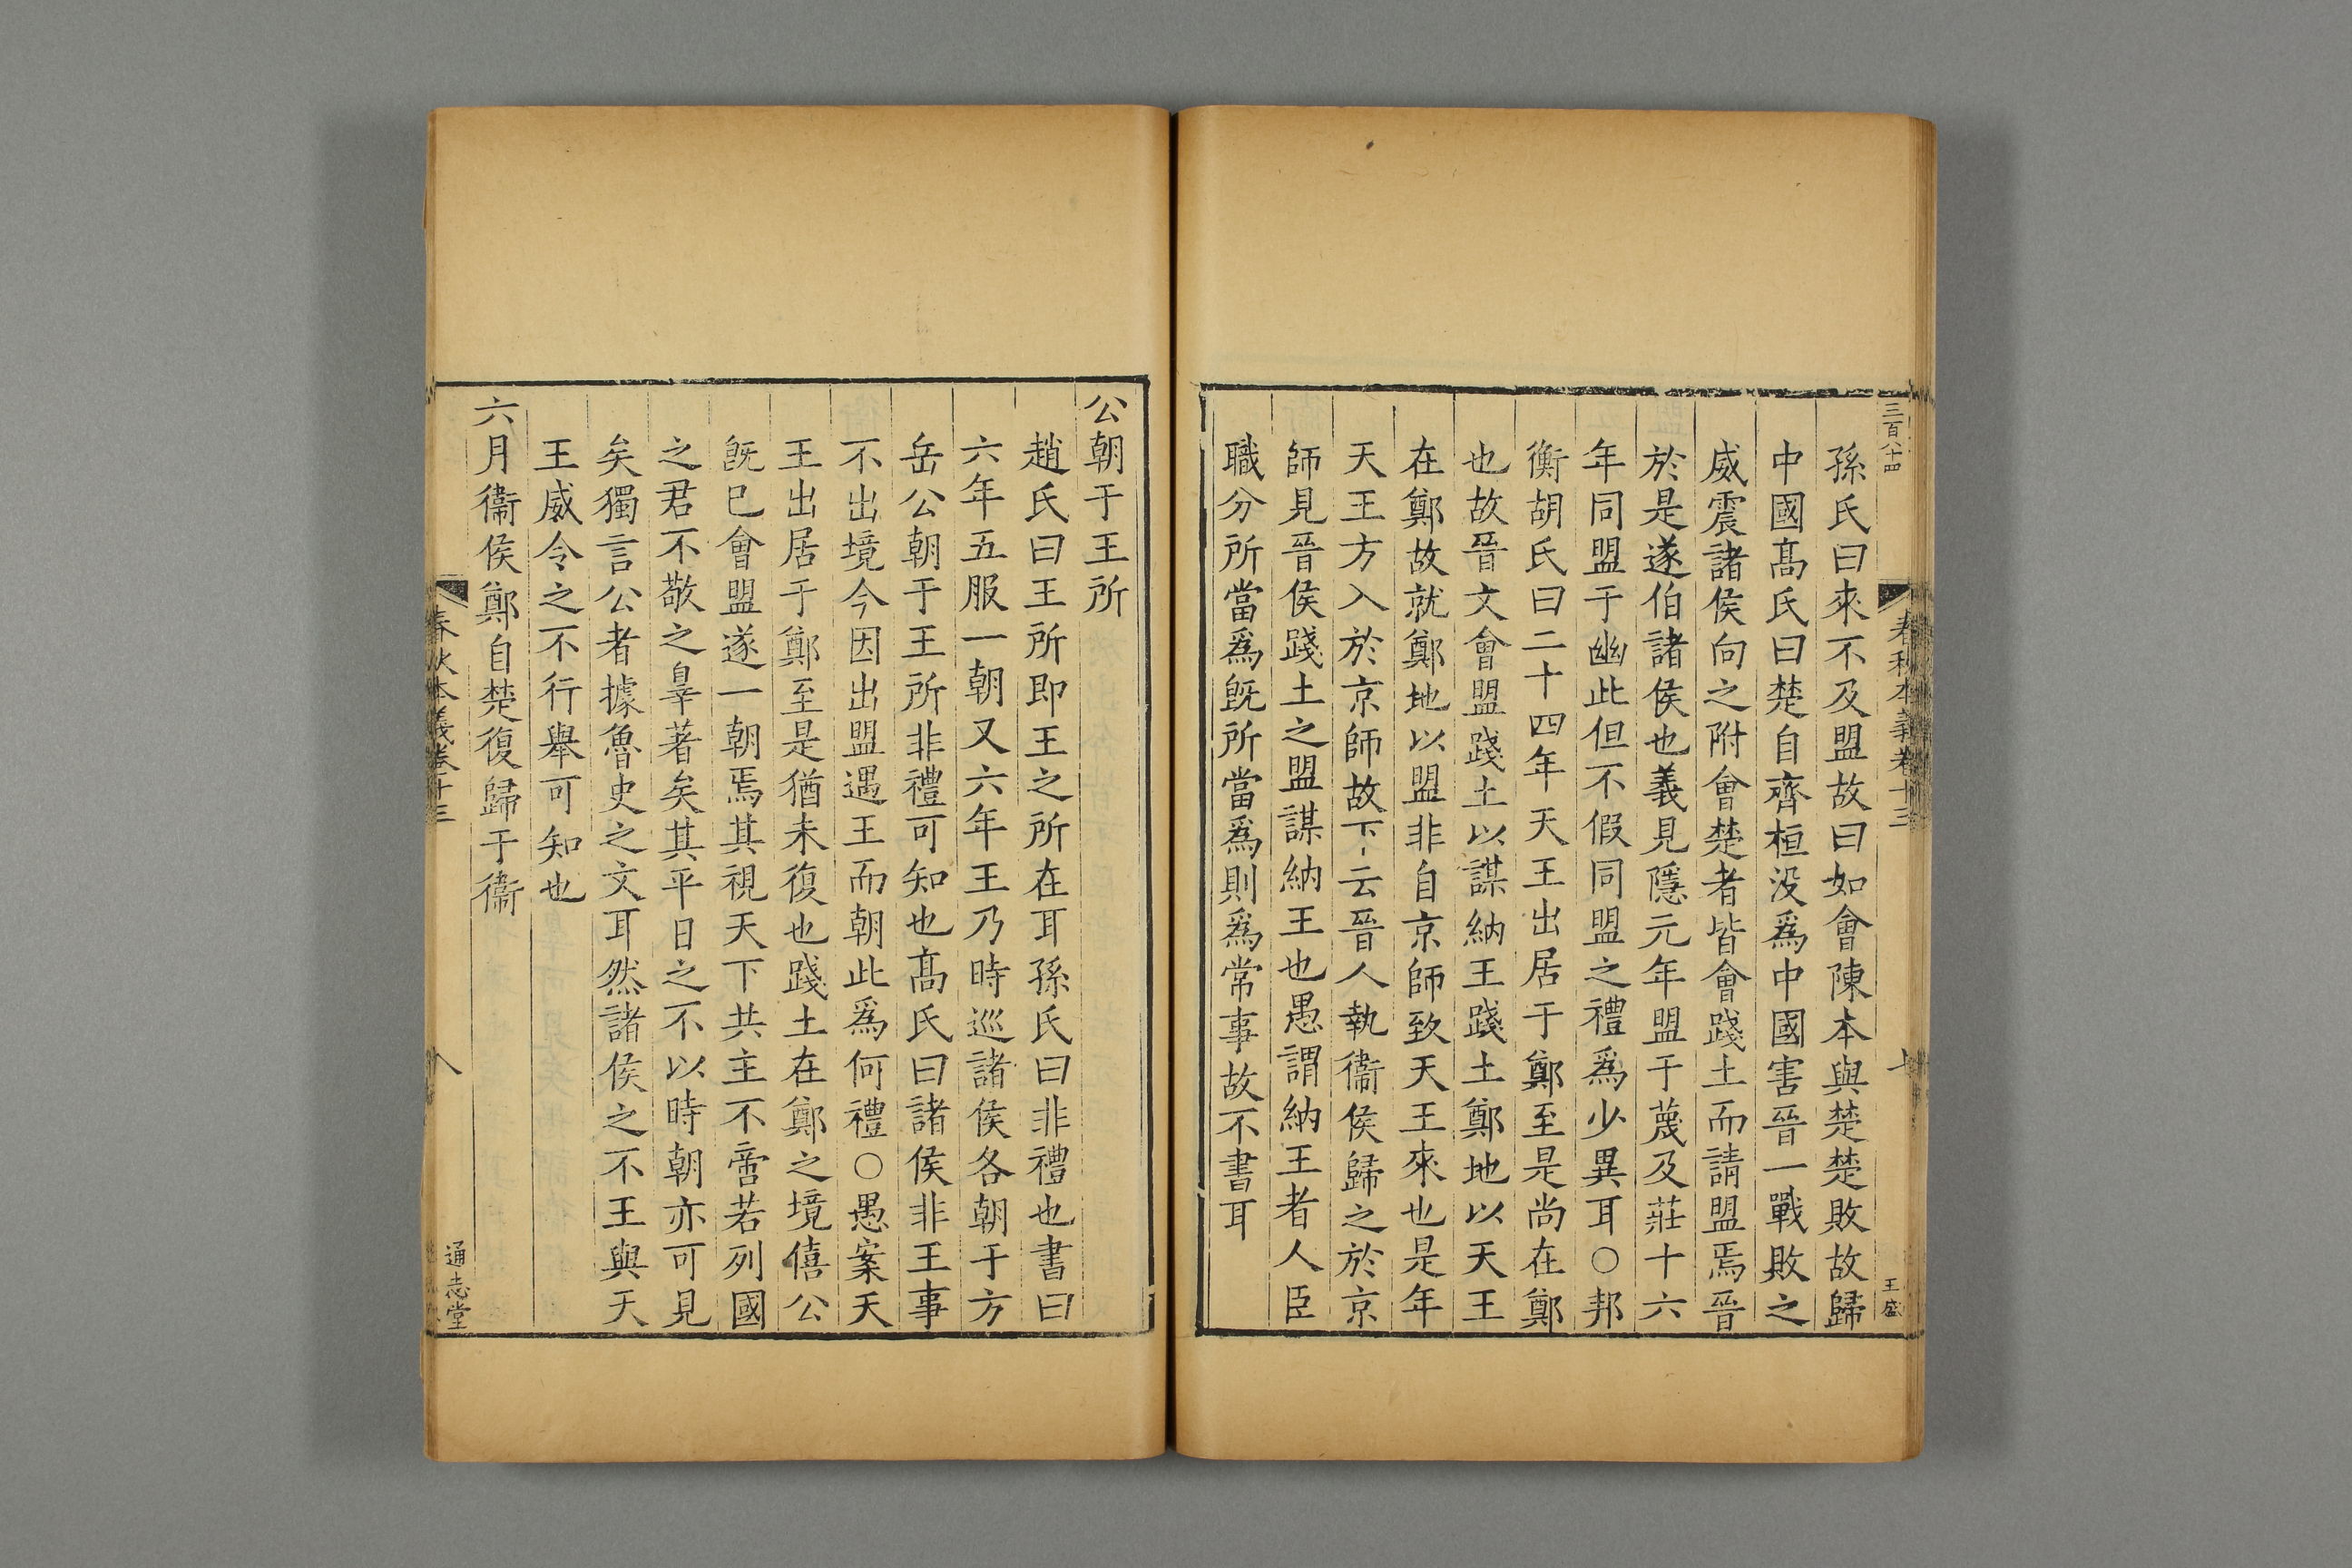 三百八十四
春秋本義卷十三
七
王盛
孫氏曰來不及盟故曰如會陳本與楚楚敗故歸
中國髙氏曰楚自齊桓没爲中國害晉一戰敗之
威震諸侯向之附會楚者皆會踐土而請盟焉晉
於是遂伯諸侯也義見隱元年盟于蔑及莊十六
年同盟于幽此但不假同盟之禮爲少異耳○邦
衡胡氏曰二十四年天王出居于鄭至是尚在鄭
也故晉文會盟踐土以謀納王踐土鄭地以天王
在鄭故就鄭地以盟非自京師致天王來也是年
天王方入於京師故下云晉人執衞侯歸之於京
師見晉侯踐土之盟謀納王也愚謂納王者人臣
職分所當爲旣所當爲則爲常事故不書耳
公朝于王所
趙氏曰王所即王之所在耳孫氏曰非禮也書曰
六年五服一朝又六年王乃時巡諸侯各朝于方
岳公朝于王所非禮可知也髙氏曰諸侯非王事
不出境今因出盟遇王而朝此爲何禮○愚案天
王出居于鄭至是猶未復也踐土在鄭之境僖公
旣已會盟遂一朝焉其視天下共主不啻若列國
之君不敬之辠著矣其平日之不以時朝亦可見
矣獨言公者據魯史之文耳然諸侯之不王與天
王威令之不行舉可知也
六月衞侯鄭自楚復歸于衞
春秋本義卷十三
八
通志堂